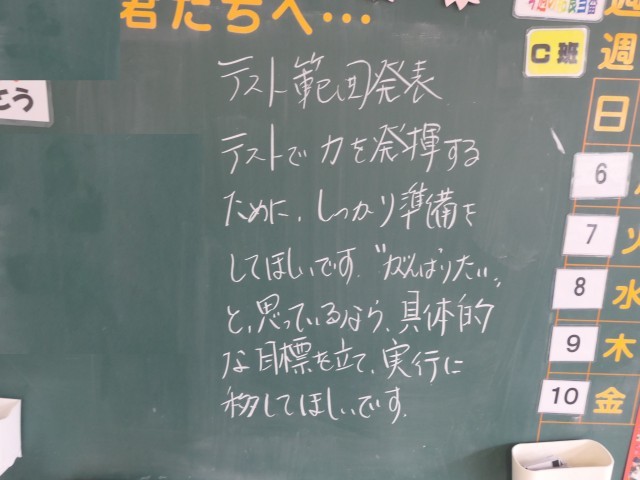 君たちへ…
テスト範囲発表
テストで力を発揮する
ために、しっかり準備を
してほしいです。"がんばりたい"
と、思っているなら、具体的
な目標を立て、実行に
移してほしいです。
C班
週
日
6
7
8 水
9 木
10 金